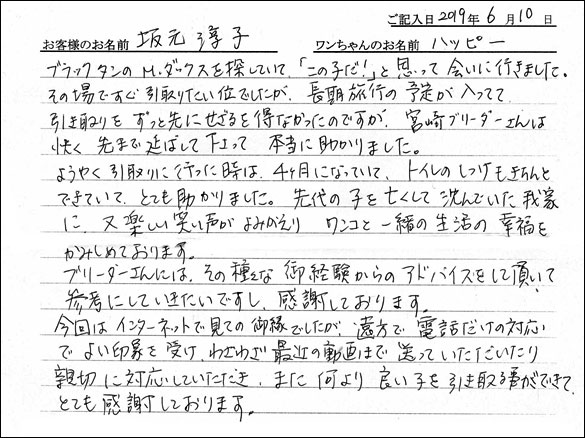 ご記入日 2019年 6月 10日
お客様のお名前 坂元 淳子 ワンちゃんのお名前 ハッピー
ブラックタンのM.ダックスを探していて、「この子だ!」と思って会いに行きました。
その場ですぐ引取りたい位でしたが、長期旅行の予定が入ってて
引き取りをずっと先にせざるを得なかったのですが、宮崎ブリーダーさんは
快く先まで延ばして下さって本当に助かりました。
ようやく引取りに行った時は、4ヶ月になっていて、トイレのしつけもきちんと
できていて、とても助かりました。先代の子を亡くして沈んでいた我家
に、又楽しい笑い声がよみがえり ワンコと一緒の生活の幸福を
かみしめております。
ブリーダーさんには、その種々な御経験からのアドバイスをして頂いて
参考にしていきたいですし、感謝しております。
今回はインターネットで見ての御縁でしたが、遠方で電話だけの対応
でよい印象を受け、わざわざ最近の動画まで送っていただいたり
親切に対応していただき、また何より良い子を引き取る事ができて、
とても感謝しております。